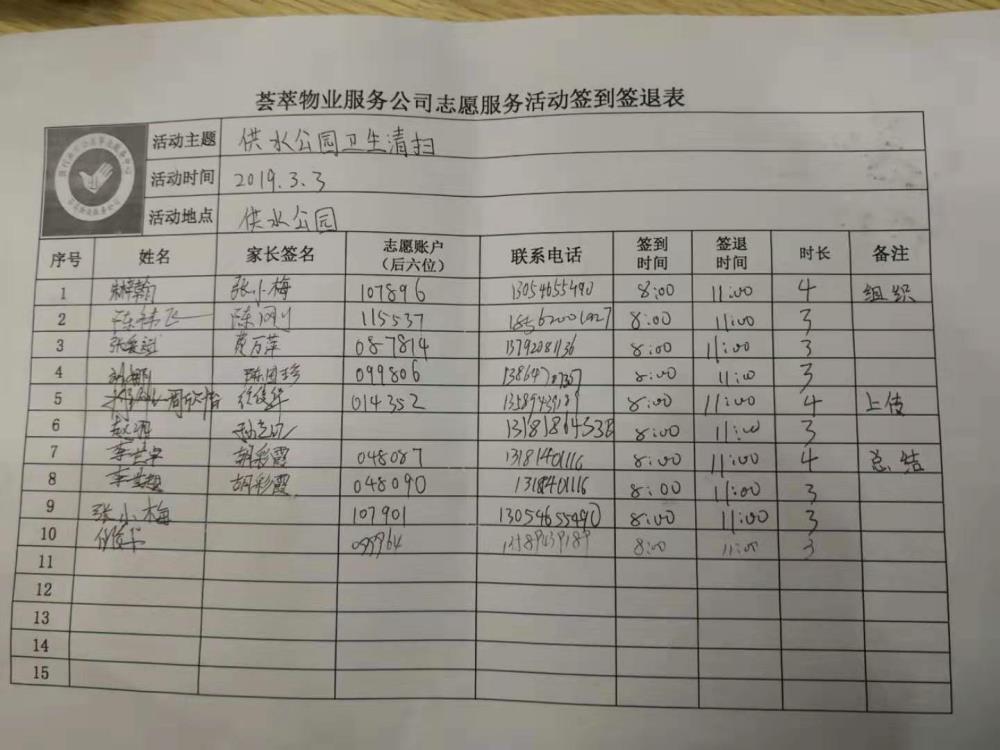 荟萃物业服务公司志愿服务活动签到签退表
活动主题 供水公园卫生清扫
活动时间 2019.3.3
活动地点 供水公园
序号 姓名 家长签名 志愿账户（后六位） 联系电话 签到时间 签退时间 时长 备注
1 张小梅 107896 13054655490 8:00 11:00 4 组织
2 陈刚 115537 8:00 11:00 3
3 087814 13792081136 8:00 11:00 3
4 099806 8:00 11:00 3
5 014352 13589439189 8:00 11:00 4 上传
6 8:00 11:00 3
7 胡彩霞 048087 13181401116 8:00 11:00 4 总结
8 胡彩霞 048090 13181401116 8:00 11:00 3
9 张小梅 107901 13054655490 8:00 11:00 3
10 13589439189 8:00 11:00 3
11
12
13
14
15